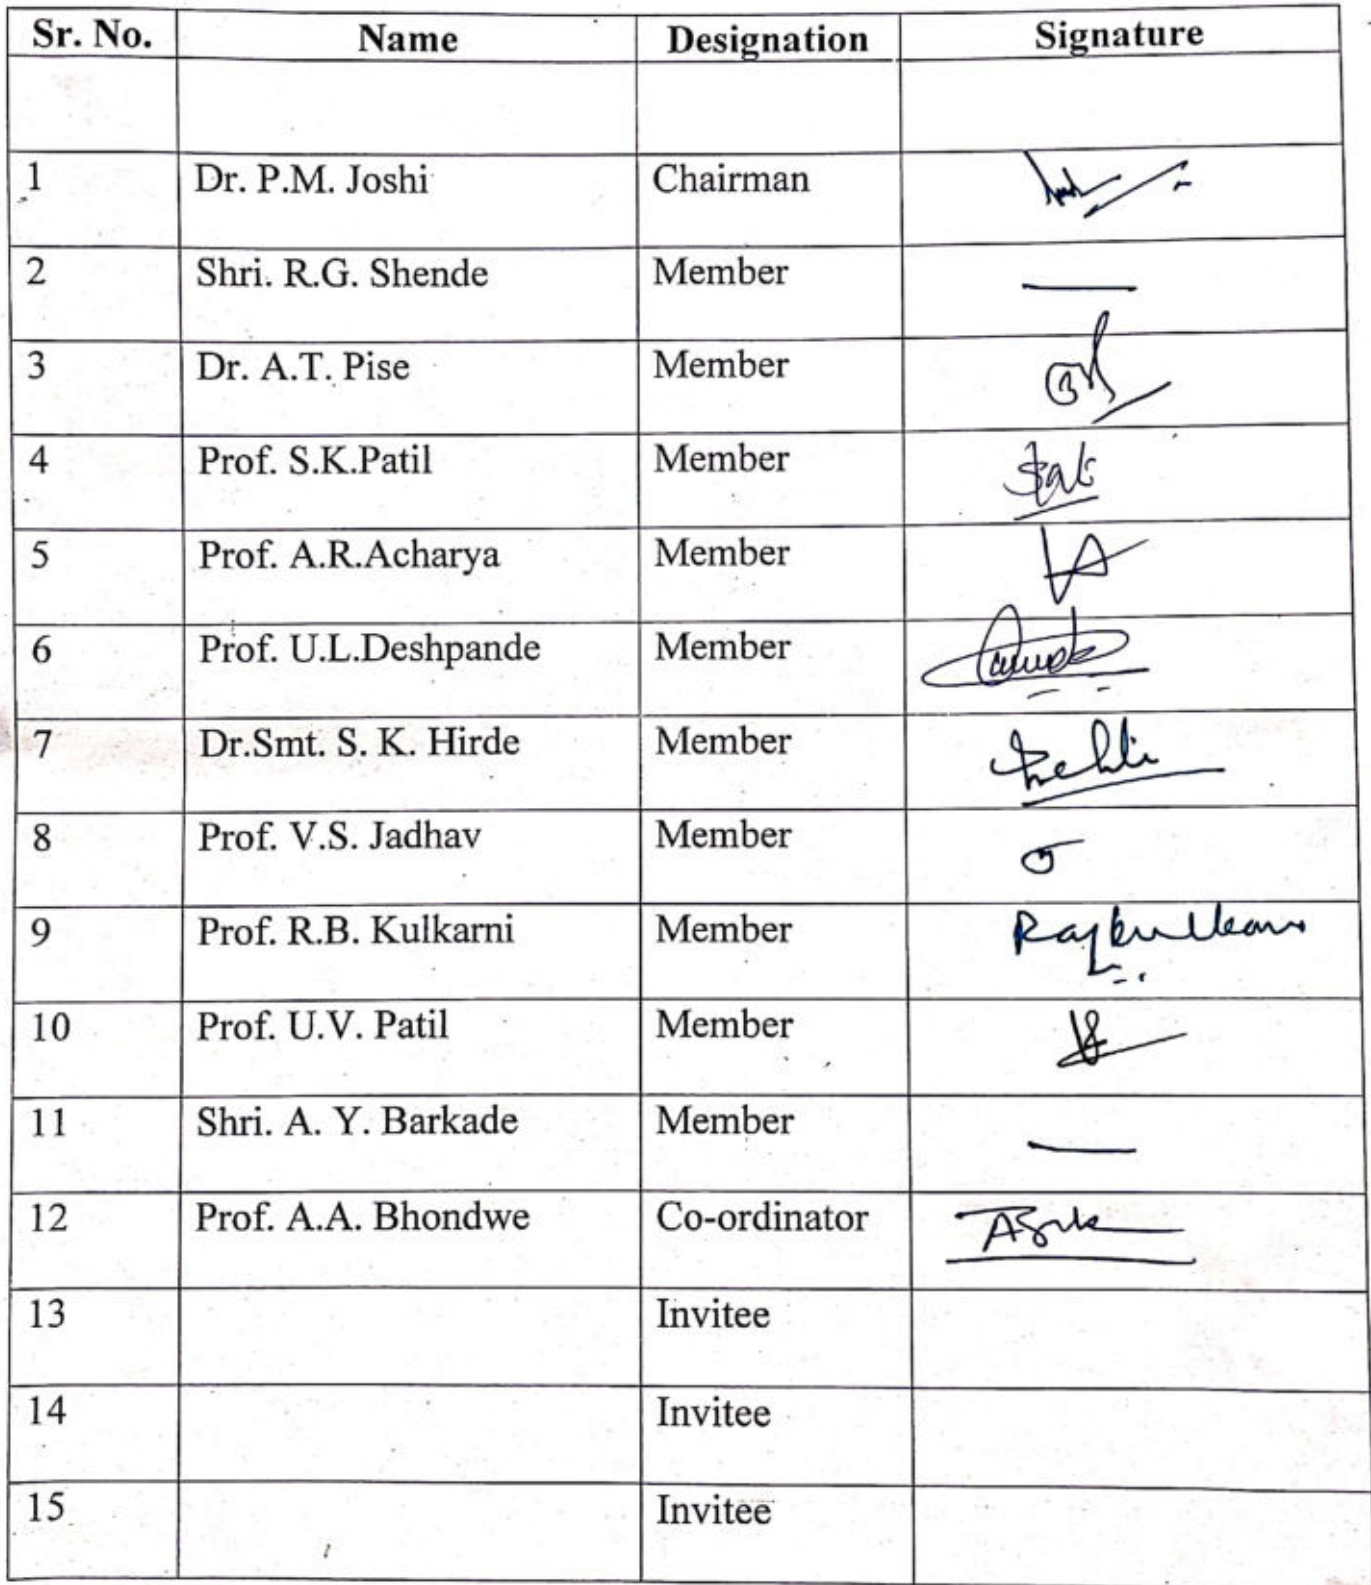 Sr. No. Name Designation Signature
1 Dr. P.M. Joshi Chairman
2 Shri. R.G. Shende Member —
3 Dr. A.T. Pise Member
4 Prof. S.K.Patil Member
5 Prof. A.R.Acharya Member
6 Prof. U.L.Deshpande Member
7 Dr.Smt. S. K. Hirde Member
8 Prof. V.S. Jadhav Member
9 Prof. R.B. Kulkarni Member
10 Prof. U.V. Patil Member
11 Shri. A. Y. Barkade Member —
12 Prof. A.A. Bhondwe Co-ordinator
13 Invitee
14 Invitee
15 Invitee